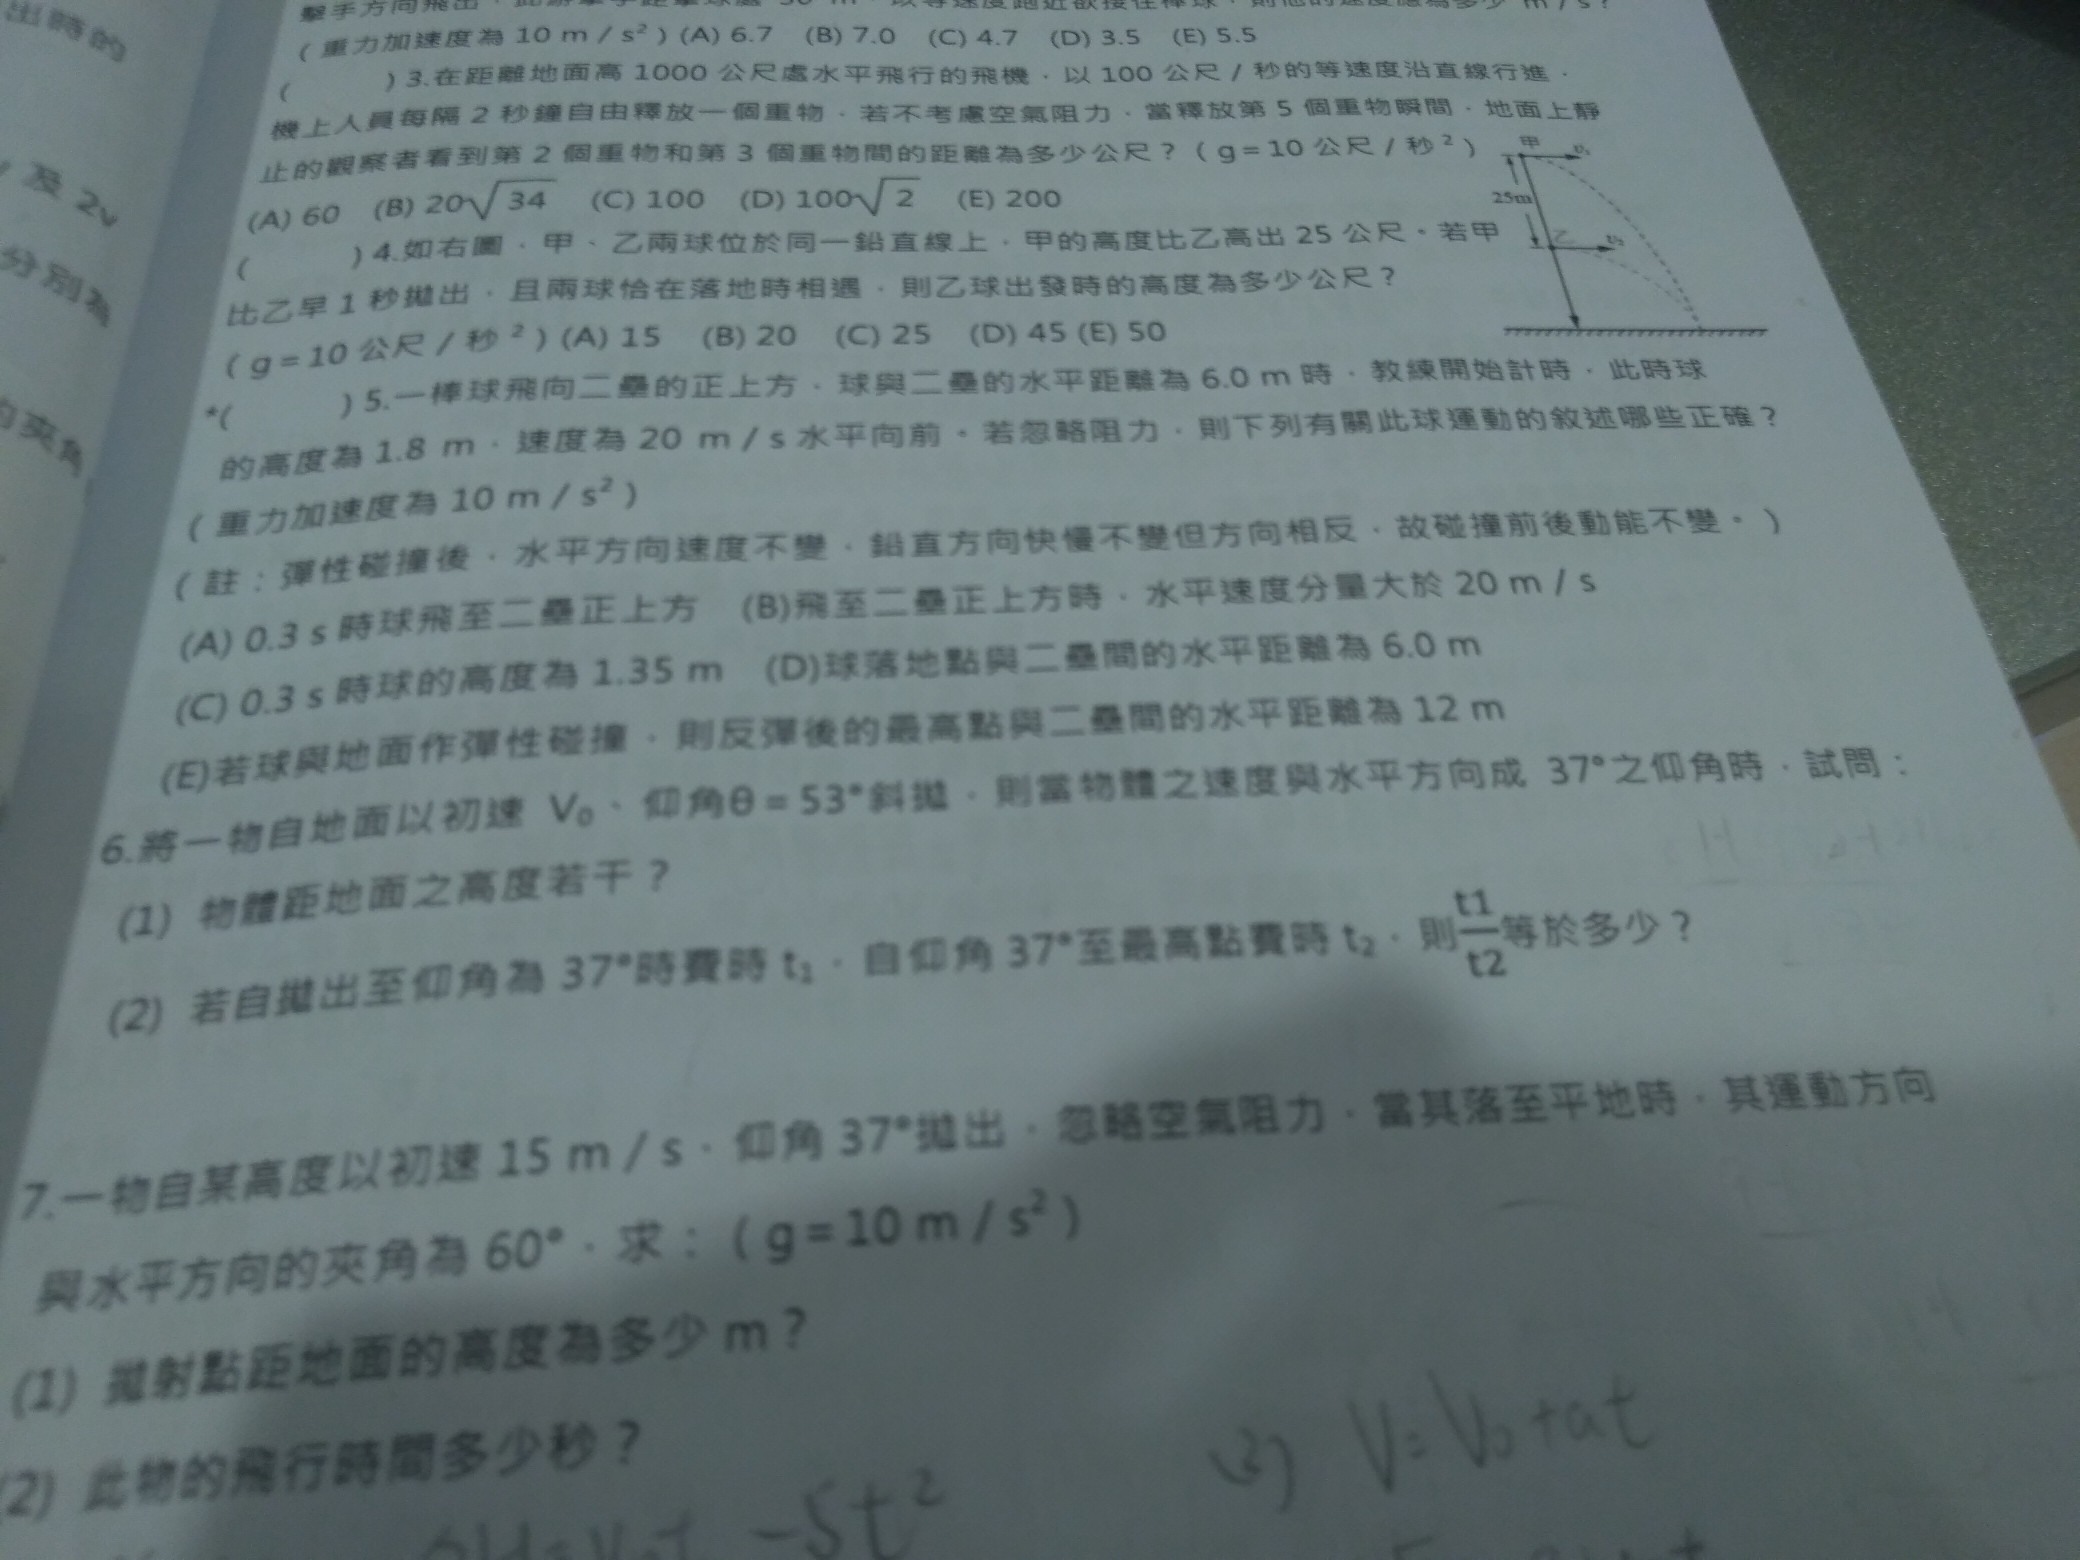 出時的
及 2v
分別為
的夾角
(重力加速度為 10 m / s²) (A) 6.7 (B) 7.0 (C) 4.7 (D) 3.5 (E) 5.5
( ) 3.在距離地面高 1000 公尺處水平飛行的飛機,以 100 公尺 / 秒的等速度沿直線行進,
機上人員每隔 2 秒鐘自由釋放一個重物,若不考慮空氣阻力,當釋放第 5 個重物瞬間,地面上靜
止的觀察者看到第 2 個重物和第 3 個重物間的距離為多少公尺?(g=10 公尺 / 秒²)
(A) 60 (B) 20√34 (C) 100 (D) 100√2 (E) 200
( ) 4.如右圖,甲、乙兩球位於同一鉛直線上,甲的高度比乙高出 25 公尺。若甲
比乙早 1 秒拋出,且兩球恰在落地時相遇,則乙球出發時的高度為多少公尺?
(g=10 公尺 / 秒²) (A) 15 (B) 20 (C) 25 (D) 45 (E) 50
甲 v₁
25m
乙 v₂
*( ) 5.一棒球飛向二壘的正上方,球與二壘的水平距離為 6.0 m 時,教練開始計時,此時球
的高度為 1.8 m,速度為 20 m / s 水平向前。若忽略阻力,則下列有關此球運動的敘述哪些正確?
(重力加速度為 10 m / s²)
(註:彈性碰撞後,水平方向速度不變,鉛直方向快慢不變但方向相反,故碰撞前後動能不變。)
(A) 0.3 s 時球飛至二壘正上方 (B)飛至二壘正上方時,水平速度分量大於 20 m / s
(C) 0.3 s 時球的高度為 1.35 m (D)球落地點與二壘間的水平距離為 6.0 m
(E)若球與地面作彈性碰撞,則反彈後的最高點與二壘間的水平距離為 12 m
6.將一物自地面以初速 V₀、仰角θ=53°斜拋,則當物體之速度與水平方向成 37°之仰角時,試問:
(1) 物體距地面之高度若干?
(2) 若自拋出至仰角為 37°時費時 t₁,自仰角 37°至最高點費時 t₂,則t1/t2等於多少?
7.一物自某高度以初速 15 m / s、仰角 37°拋出,忽略空氣阻力,當其落至平地時,其運動方向
與水平方向的夾角為 60°,求:(g=10 m / s²)
(1) 拋射點距地面的高度為多少 m?
(2) 此物的飛行時間多少秒?
(2) V=V₀+at
-5t²